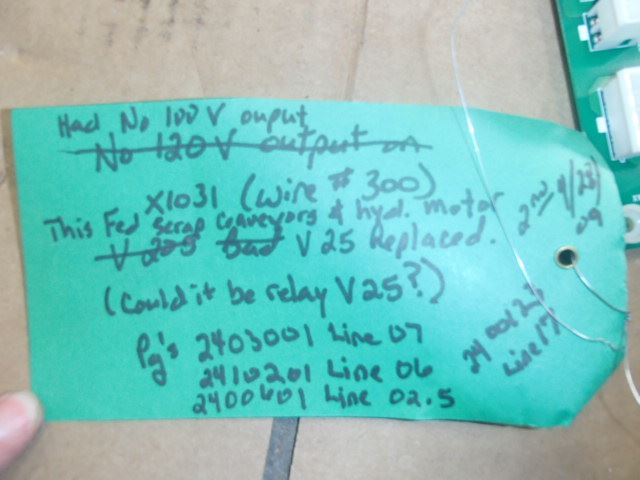 Had No 100 V ouput
No 120V output on
X1031 (wire # 300)
This Fed Scrap Conveyors & hyd. motor
V 205 bad V 25 Replaced.
(Could it be relay V25?)
Pg's 2403001 Line 07
2410201 Line 06
2400601 Line 02.5
2nd 9/28/09
Line 17